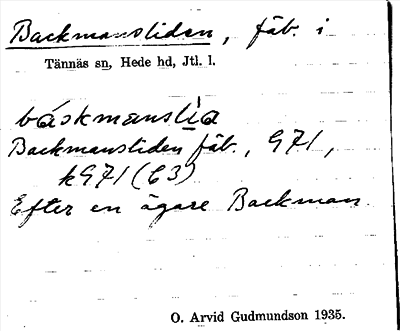 Backmansliden, fäb. i
Tännäs sn, Hede hd, Jtl. l.
báskmanslìa
Backmansliden fäb., G71,
kG71 (C3)
Efter en ägare Backman.
O. Arvid Gudmundson 1935.